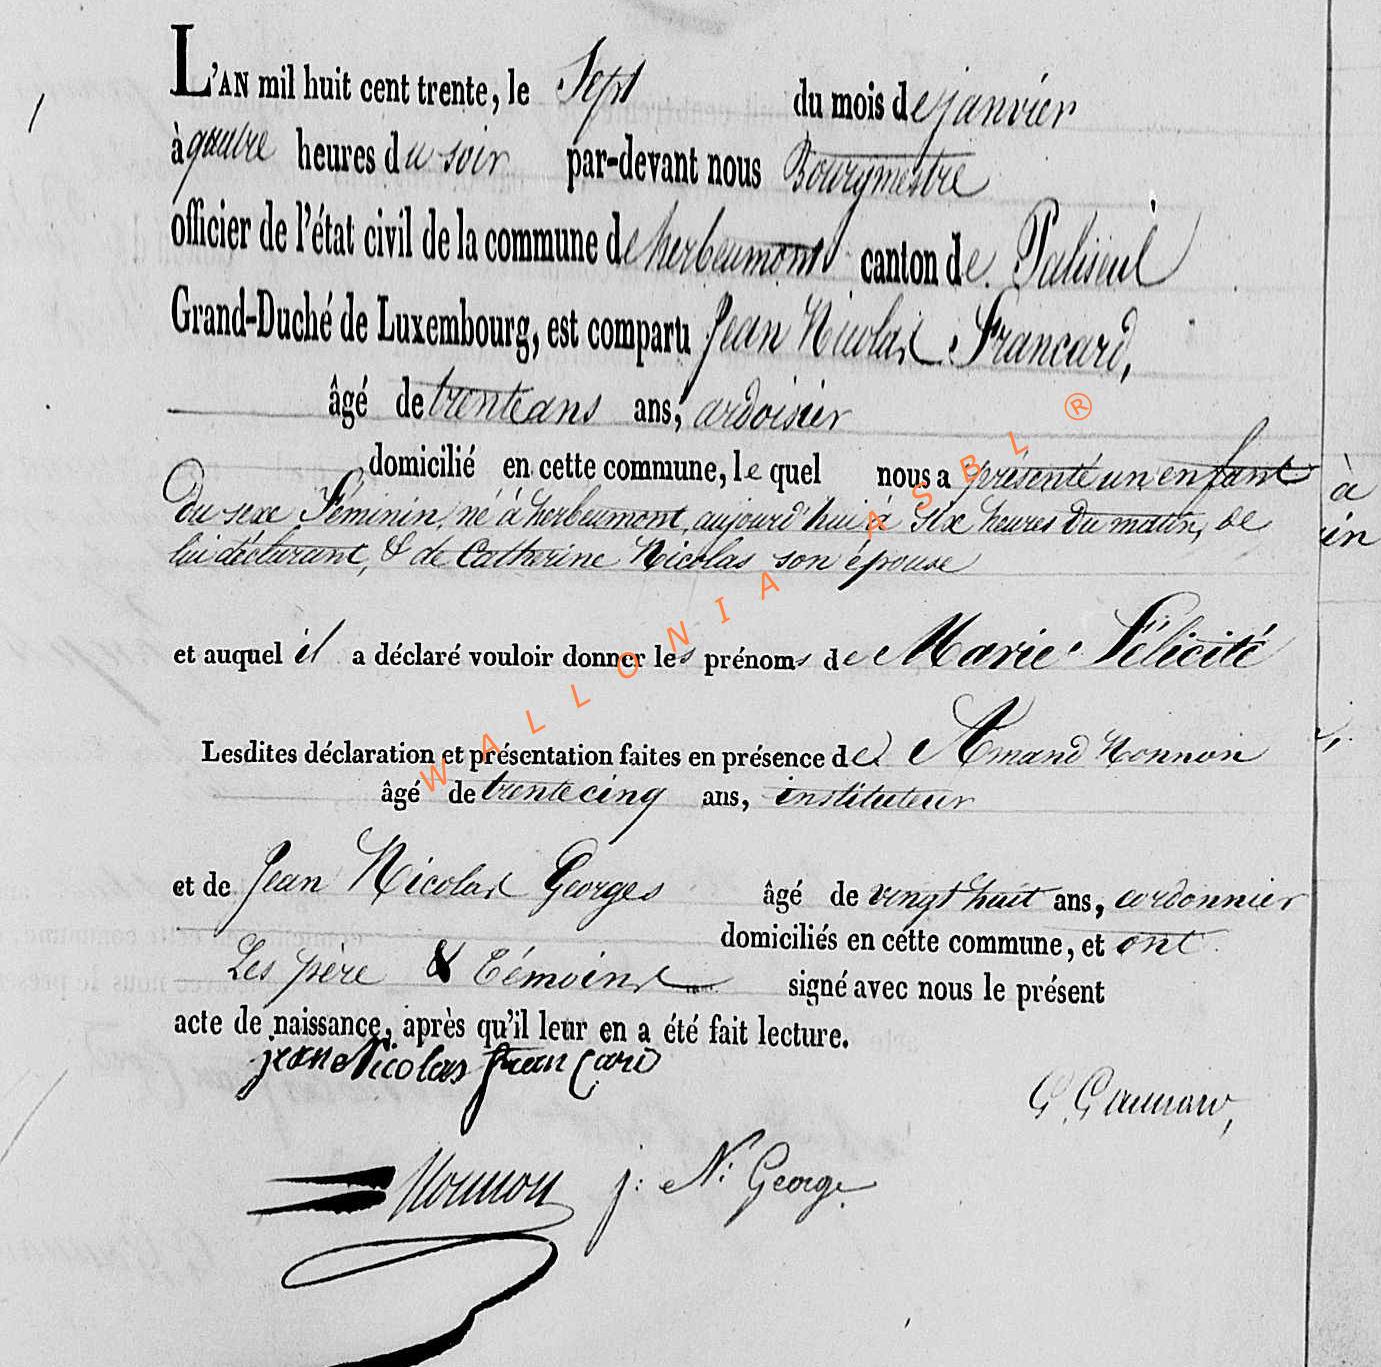 L'AN mil huit cent trente, le Sept du mois de janvier
à quatre heures du soir par-devant nous Bourgmestre
officier de l'état civil de la commune de herbeumont canton de Paliseul
Grand-Duché de Luxembourg, est comparu Jean Nicolas Francard,
âgé de trente ans ans, ardoisier
domicilié en cette commune, le quel nous a présenté un enfant
du sexe Féminin, né à herbeumont, aujourd'hui à six heures du matin, de
lui déclarant, & de Catherine Nicolas son épouse
et auquel il a déclaré vouloir donner les prénoms de Marie Félicité
Lesdites déclaration et présentation faites en présence de Amand Nonnon
âgé de trente cinq ans, instituteur
et de Jean Nicolas Georges âgé de vingt huit ans, cordonnier
domiciliés en cette commune, et ont
Les père & témoins signé avec nous le présent
acte de naissance, après qu'il leur en a été fait lecture.
jean Nicolas francard
Nonnon j: N: George
à
in
WALLONIA ASBL ®